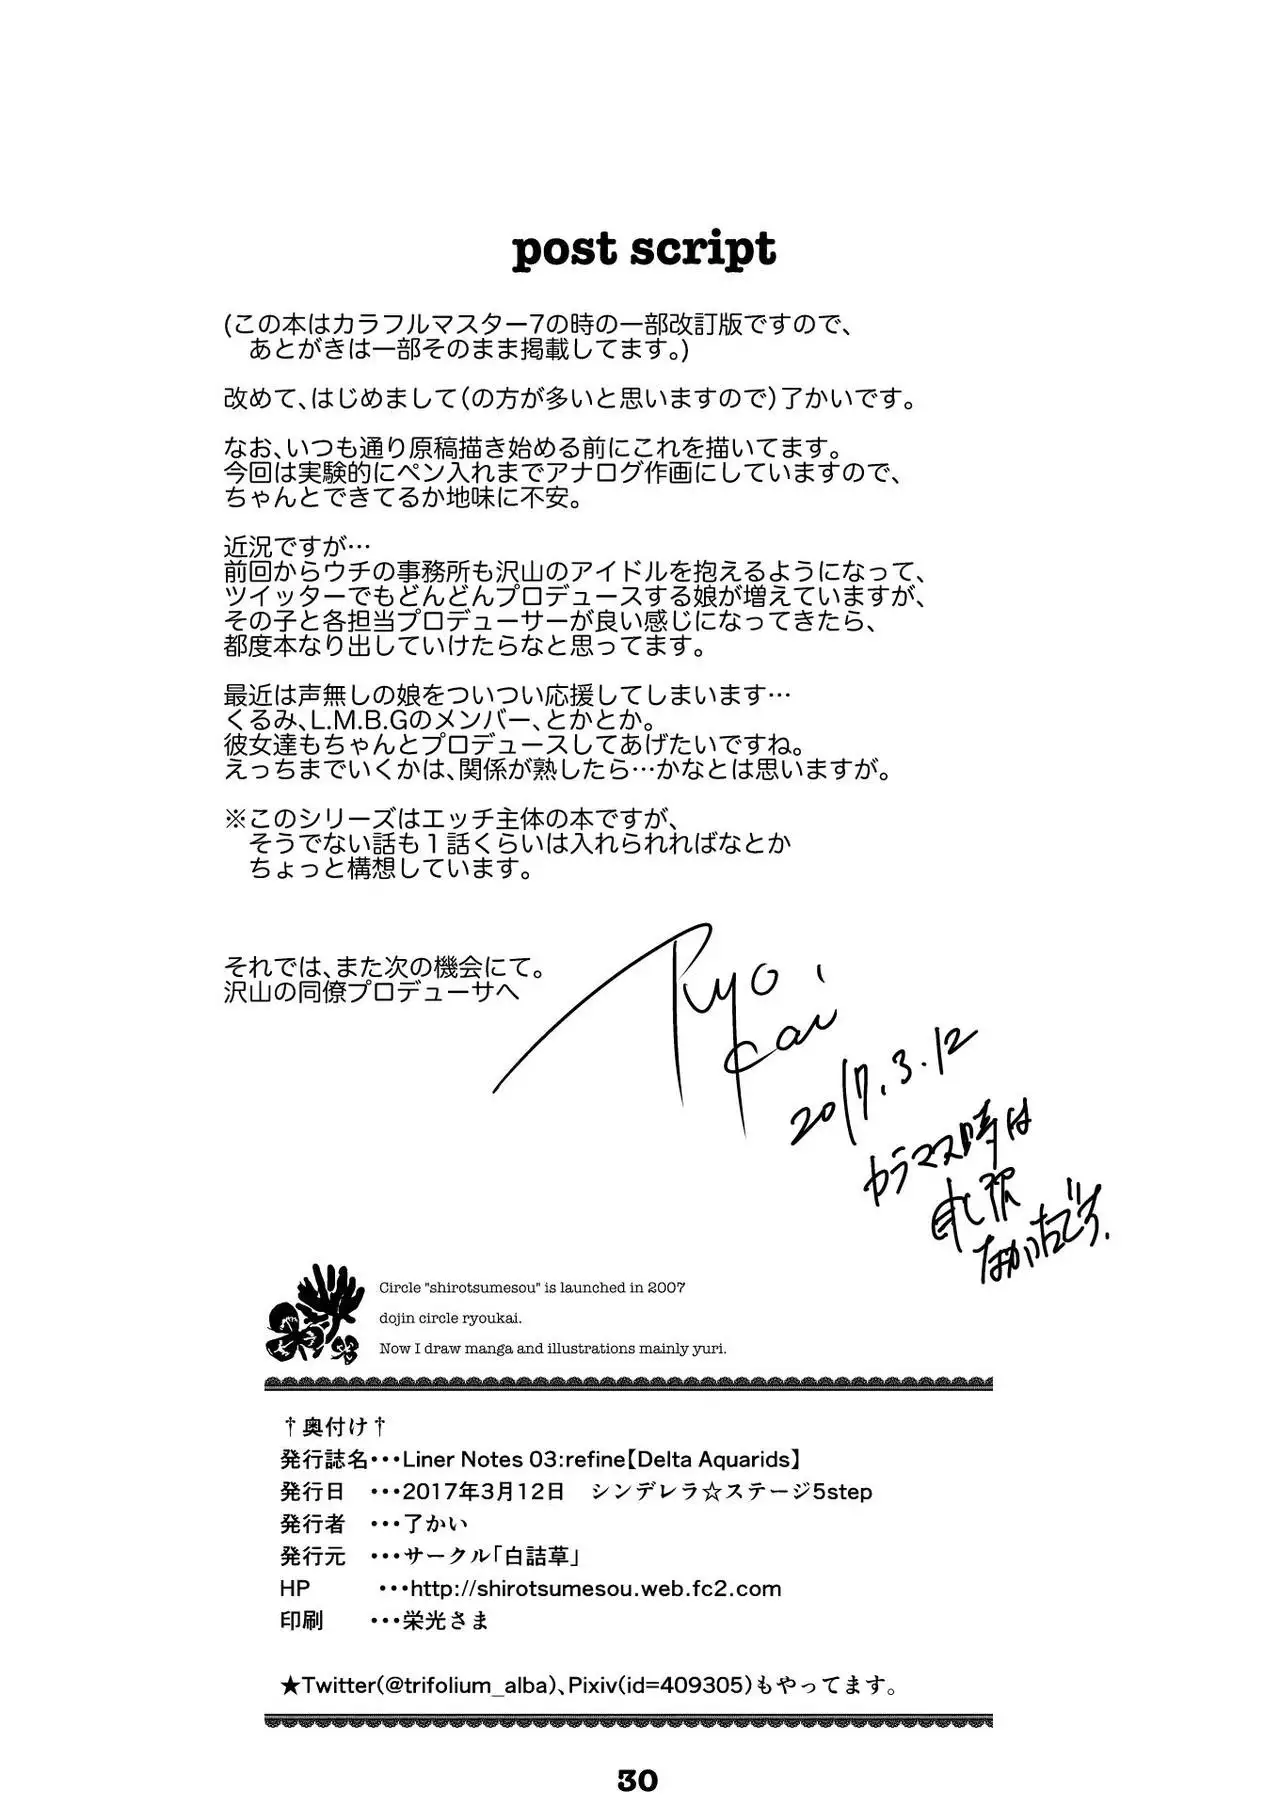 post script
(この本はカラフルマスター7の時の一部改訂版ですので、
あとがきは一部そのまま掲載してます。)
改めて、はじめまして(の方が多いと思いますので)了かいです。
なお、いつも通り原稿描き始める前にこれを描いてます。
今回は実験的にペン入れまでアナログ作画にしていますので、
ちゃんとできてるか地味に不安。
近況ですが…
前回からウチの事務所も沢山のアイドルを抱えるようになって、
ツイッターでもどんどんプロデュースする娘が増えていますが、
その子と各担当プロデューサーが良い感じになってきたら、
都度本なり出していけたらなと思ってます。
最近は声無しの娘をついつい応援してしまいます…
くるみ、L.M.B.Gのメンバー、とかとか。
彼女達もちゃんとプロデュースしてあげたいですね。
えっちまでいくかは、関係が熟したら…かなとは思いますが。
※このシリーズはエッチ主体の本ですが、
そうでない話も１話くらいは入れられればなとか
ちょっと構想しています。
それでは、また次の機会にて。
沢山の同僚プロデューサへ
Ryo.
Kai
2017.3.12
カラマス時は
申し訳
なかったです.
Circle "shirotsumesou" is launched in 2007
dojin circle ryoukai.
Now I draw manga and illustrations mainly yuri.
†奥付け†
発行誌名・・・Liner Notes 03:refine【Delta Aquarids】
発行日 ・・・2017年3月12日 シンデレラ☆ステージ5step
発行者 ・・・了かい
発行元 ・・・サークル「白詰草」
HP ・・・http://shirotsumesou.web.fc2.com
印刷 ・・・栄光さま
★Twitter(@trifolium_alba)、Pixiv(id=409305)もやってます。
30